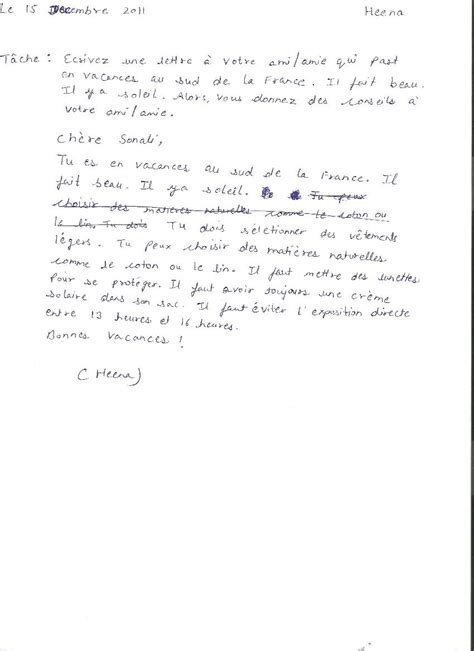 Le 15 Decembre 2011 Heena
Tâche : Ecrivez une lettre à votre ami/amie qui part
en vacances au sud de la France. Il fait beau.
Il y a soleil. Alors, vous donnez des conseils à
votre ami/amie.
Chère Sonali,
Tu es en vacances au sud de la France. Il
fait beau. Il y a soleil. Tu peux
choisir des matières naturelles comme le coton ou
le lin. Tu dois Tu dois séletionner des vêtements
légers. Tu peux choisir des matières naturelles
comme le coton ou le lin. Il faut mettre des lunettes
pour se protéger. Il faut avoir toujours une crème
solaire dans son sac. Il faut éviter l'exposition directe
entre 13 heures et 16 heures.
Bonnes vacances !
(Heena)